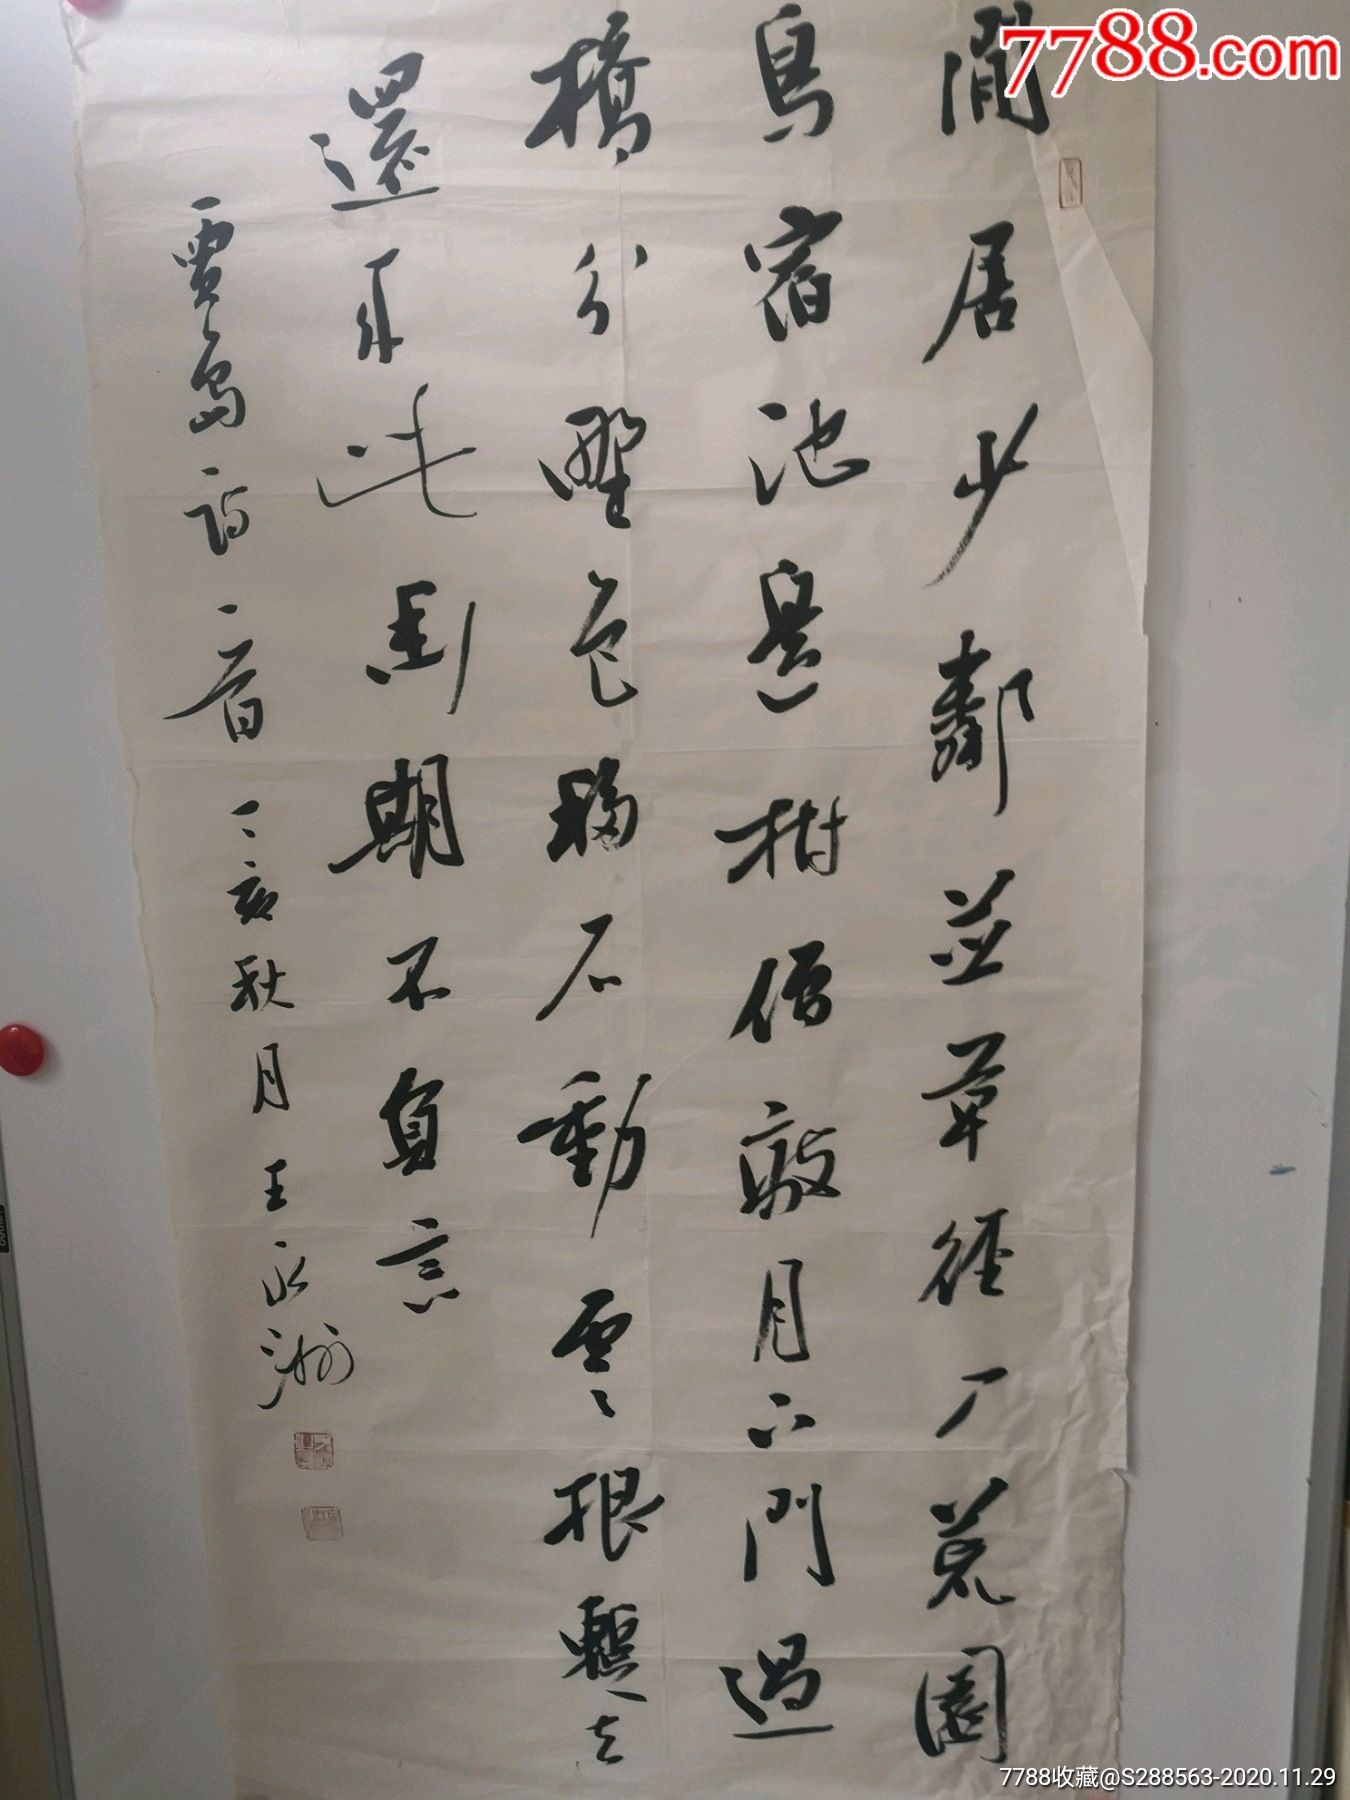 閒居少鄰並草徑入荒園
鳥宿池邊樹僧敲月下門過
橋分野色移石動雲根暫去
還來此幽期不負言
賈島詩一首丁亥秋月王永
7788.com
7788收藏@S288563-2020.11.29